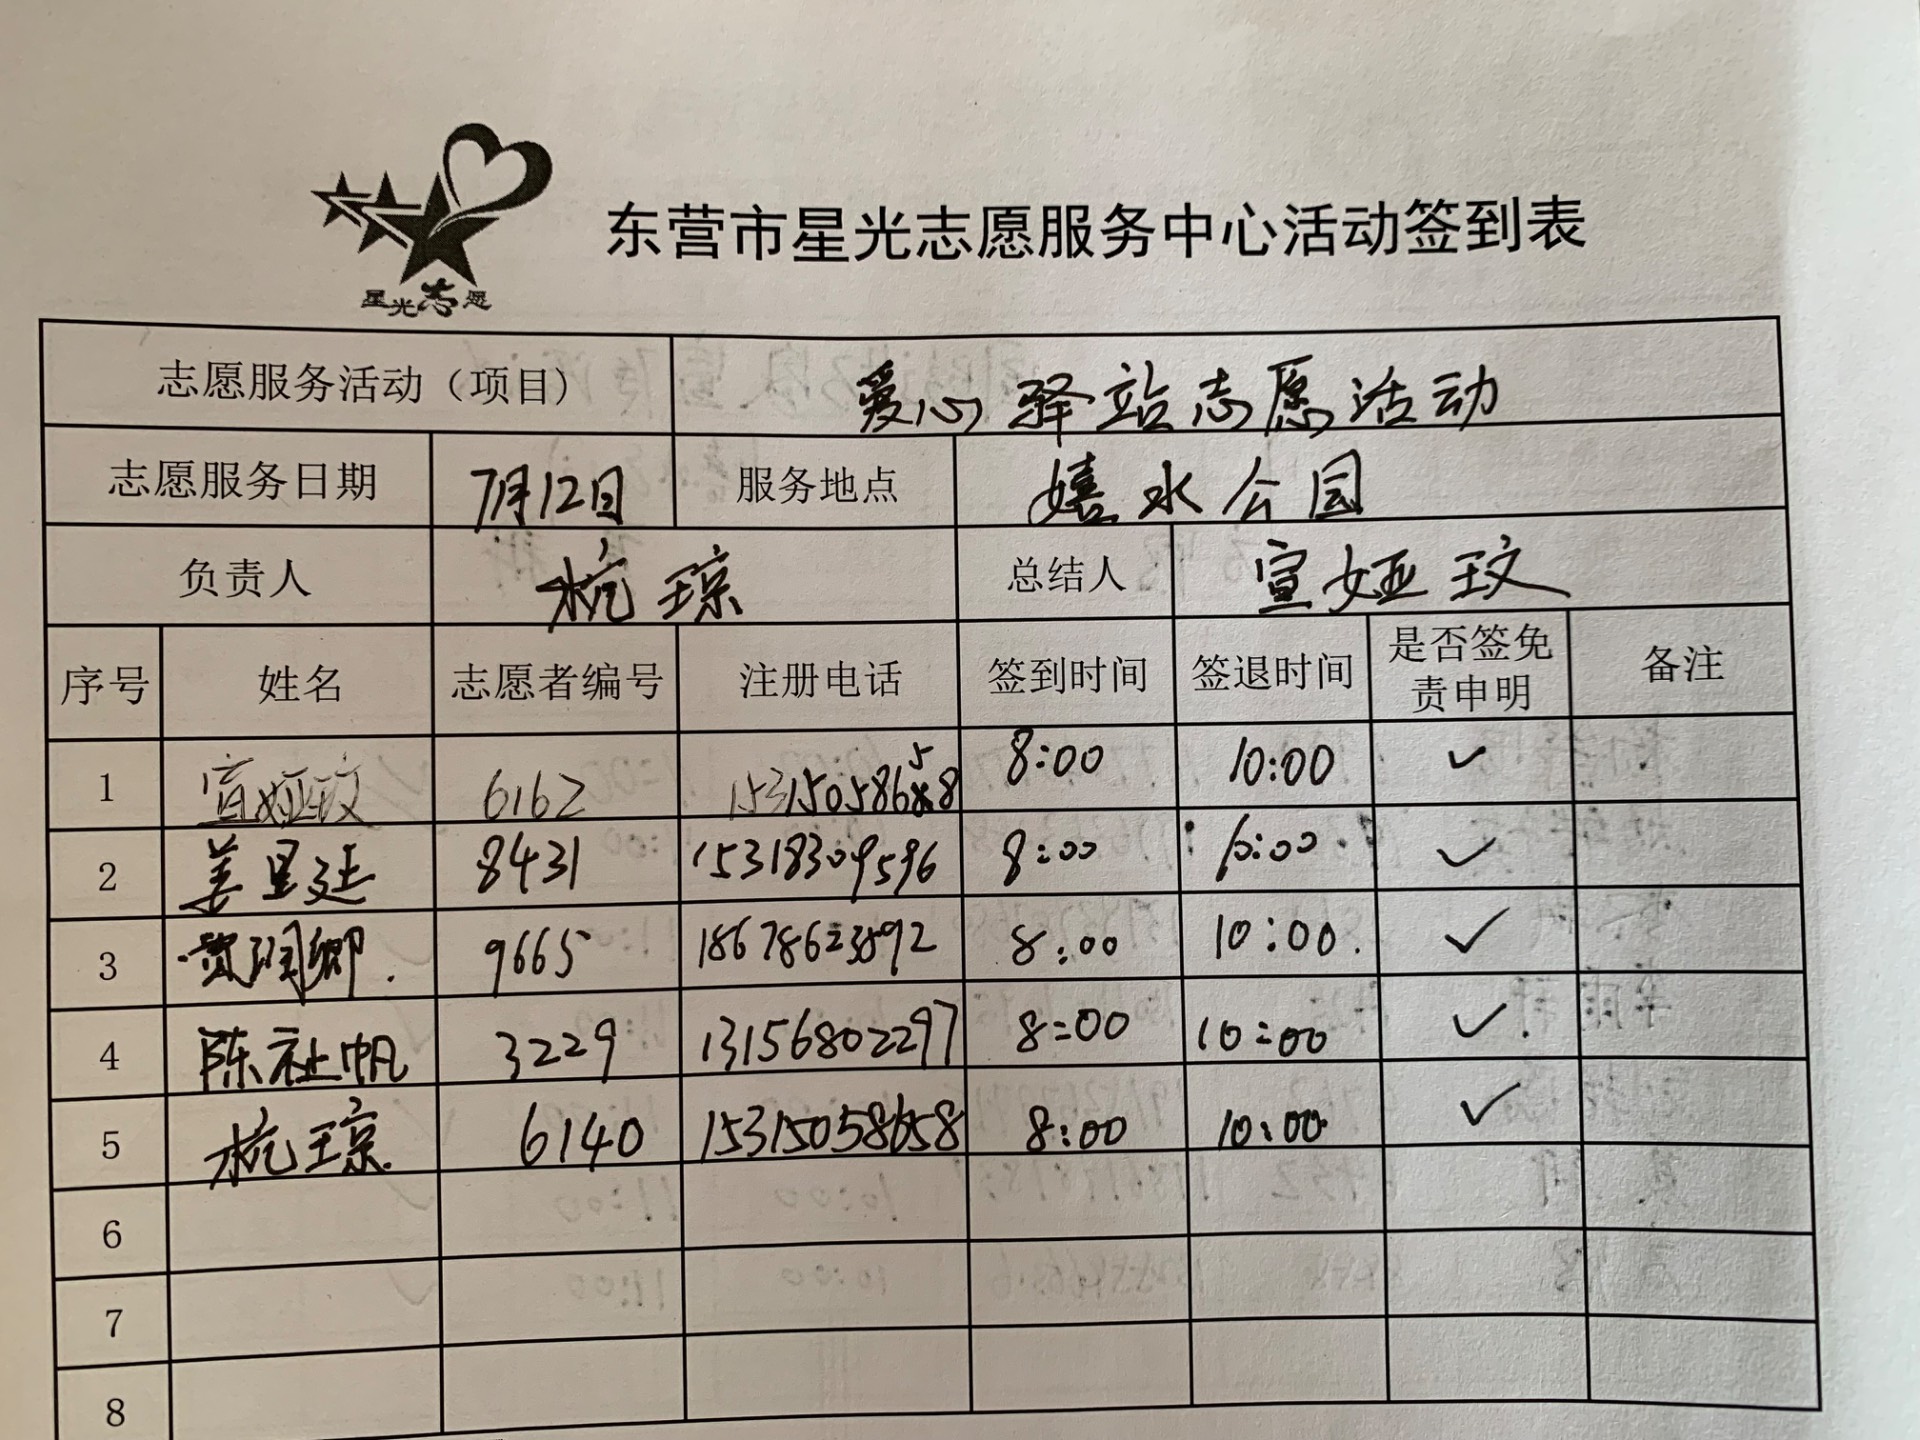 星光志愿
东营市星光志愿服务中心活动签到表
志愿服务活动（项目） 爱心驿站志愿活动
志愿服务日期 7月12日 服务地点 嬉水公园
负责人 杭琼 总结人 宣娅玟
序号 姓名 志愿者编号 注册电话 签到时间 签退时间 是否签免责申明 备注
1 宣娅玟 6162 15315058658 8:00 10:00 ✓
2 姜星廷 8431 15318309596 8:00 10:00 ✓
3 贾润卿 9665 18678623892 8:00 10:00 ✓
4 陈祉帆 3229 13156802297 8:00 10:00 ✓
5 杭琼 6140 15315058658 8:00 10:00 ✓
6
7
8